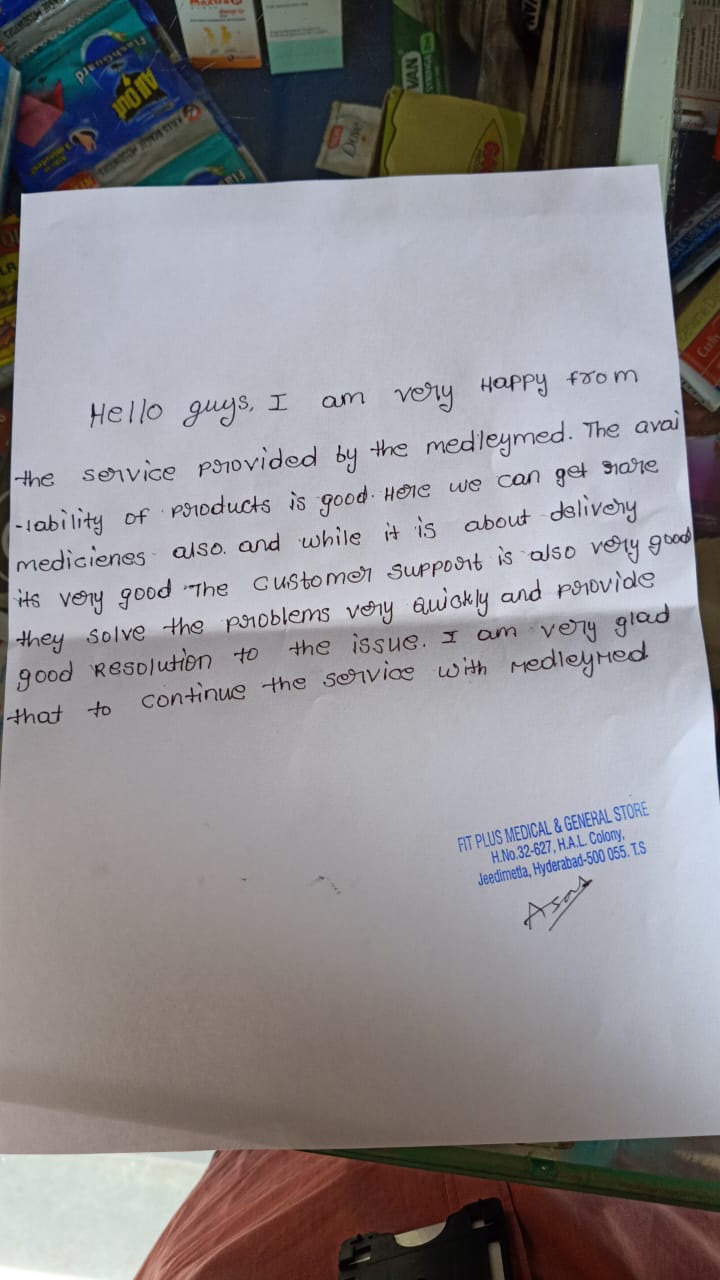 FlashGuard
All Out
VAN
Dove
Hello guys, I am very Happy from
the service provided by the medleymed. The avai
-lability of products is good. Here we can get rare
medicienes also. and while it is about delivery
its very good The customer support is also very good
they solve the problems very quickly and provide
good Resolution to the issue. I am very glad
that to continue the service with MedleyMed
FIT PLUS MEDICAL & GENERAL STORE
H.No.32-627, H.A.L. Colony,
Jeedimetla, Hyderabad-500 055. T.S